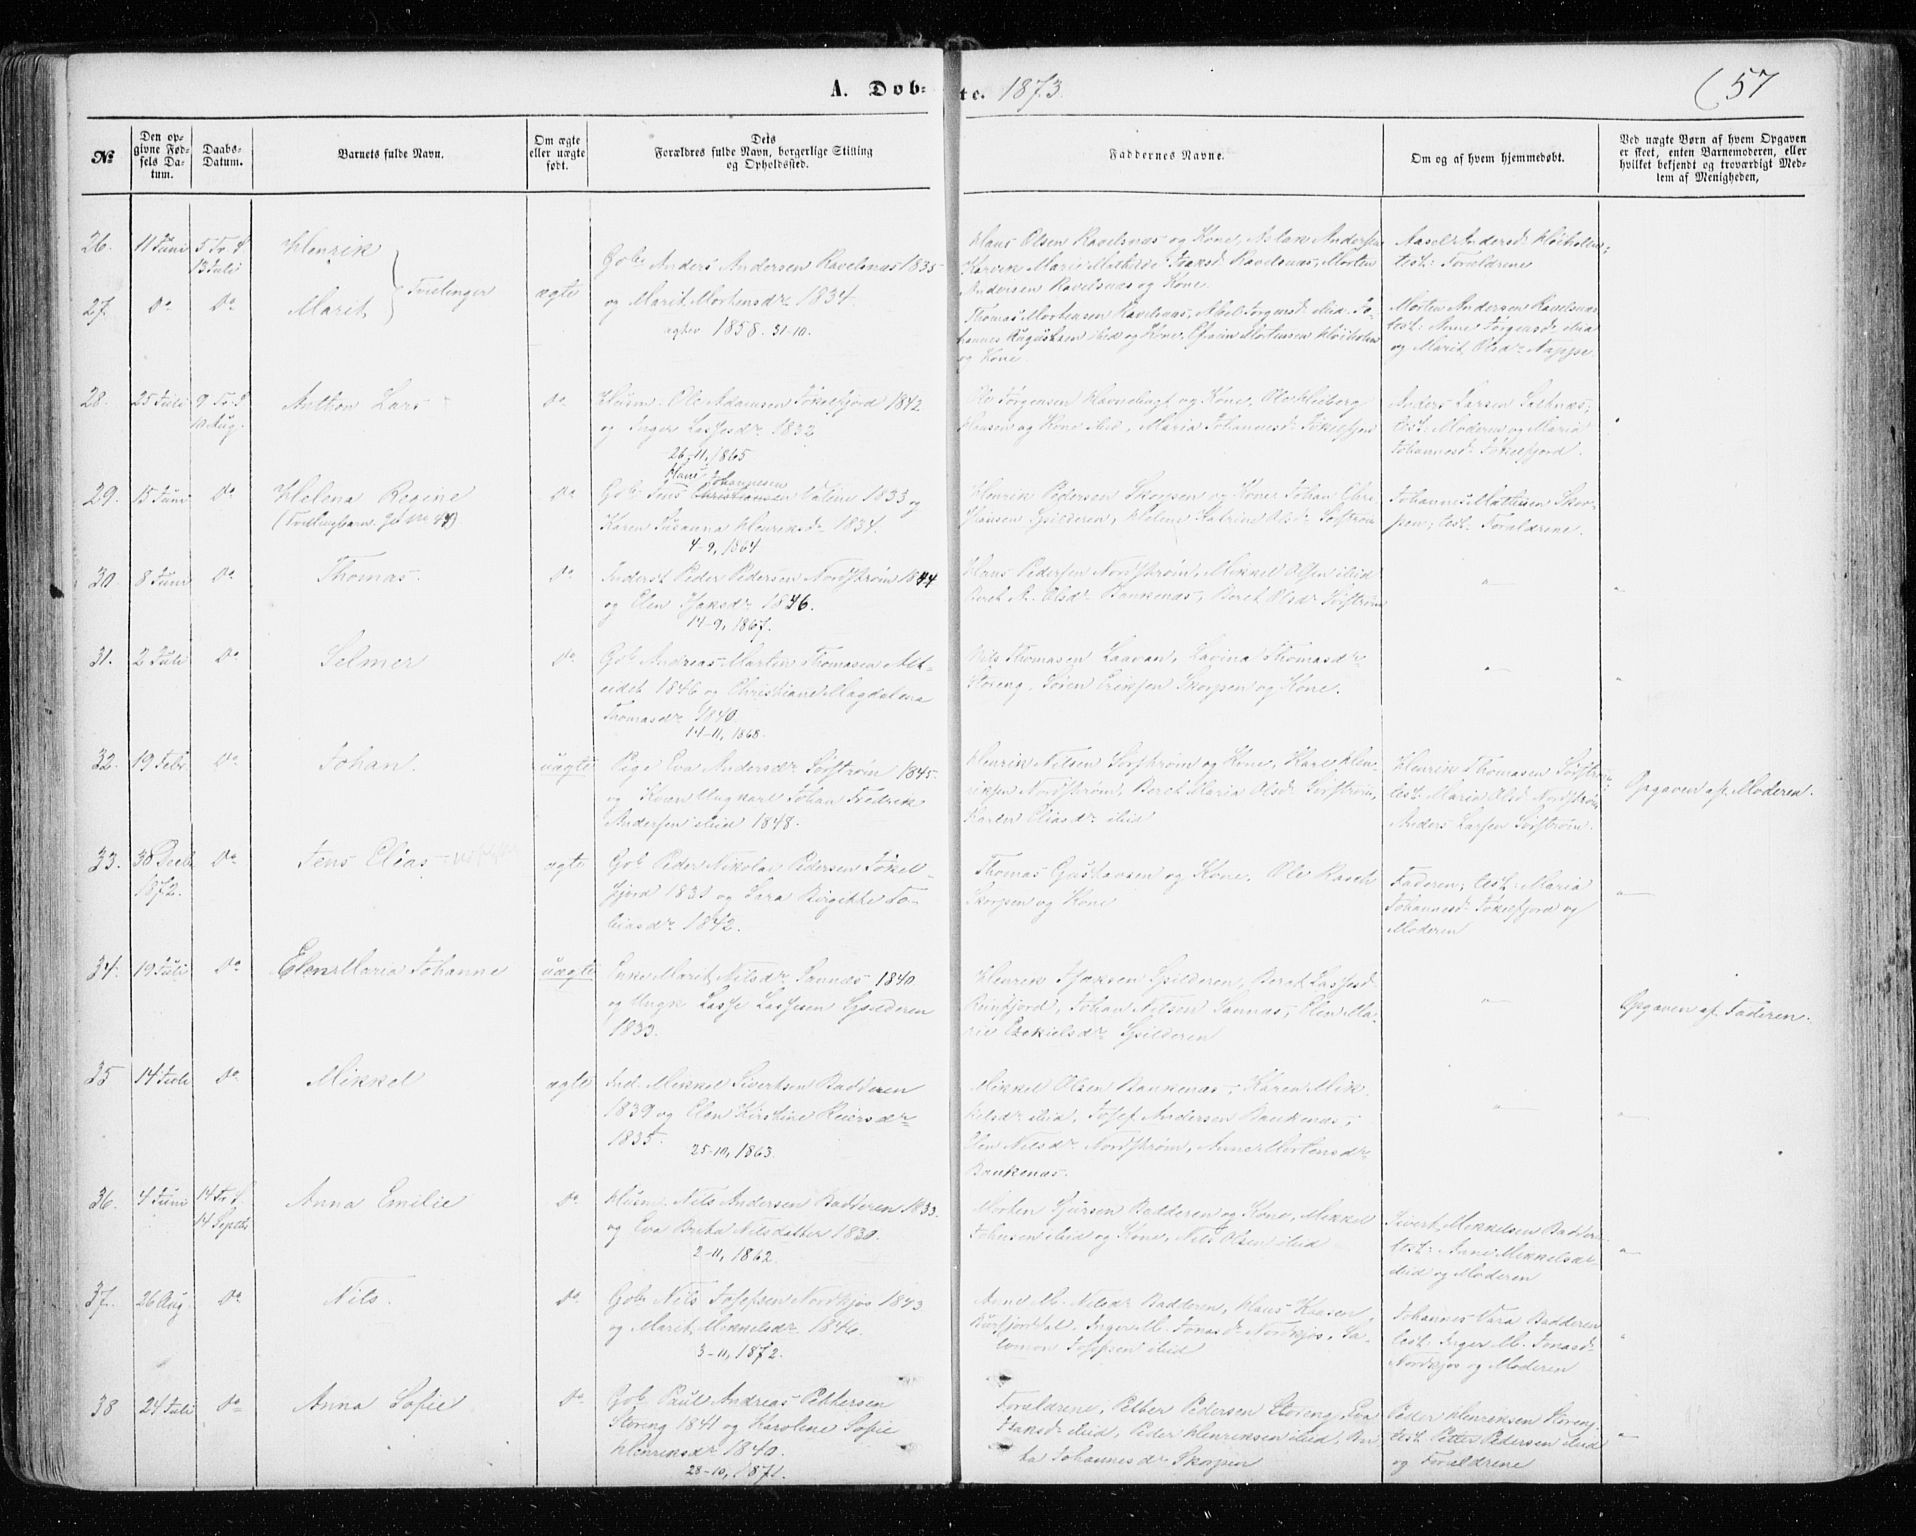 A. Døbte. 1873.
57
№
Den opgivne Fødsels Datum.
Daabs-Datum.
Barnets fulde Navn.
Om ægte eller uægte født.
Dets Forældres fulde Navn, borgerlige Stilling og Opholdssted.
Faddernes Navne.
Om og af hvem hjemmedøbt.
Ved uægte Børn af hvem Opgaven er skeet, enten Barnemoderen, eller hvilket bekjendt og troværdigt Medlem af Menigheden,
26. 11 Juni 13 Juli Henrik
Gob. Anders Andersen Ravelsnæs 1835
Hans Olsen Ravelsnæs og Kone, Aslak Andersen
Marie Mathilde Isaksd. Ravelsnæs, Morten
Andersen Ravelsnæs og Kone.
Aasel Andersd.
test: Forældrene
27. Do Do Marit Tvillinger ægte
og Marit Mortensdr 1834.
1858. 31-10.
Thomas Mortensen Ravelsnæs, Abel Jørgensd. ibid. Johannes Augustsen ibid og Kone, Efraim Mortensen
og Kone
Morten Andersen Ravelsnæs
test: Anne Jørgensd. ibid
og Marit Olsdr
28. 25 Juli 10 Aug. Anthon Lars Do
Husm. Ole Adamsen Jøkelfjord 1842
og Inger Lassesdr 1832
26-11, 1865
Ole Jørgensen Havnebugt og Kone, Ole
Hansen og Kone ibid, Maria Johannesd. Jøkelfjord
Anders Larsen
test: Moderen og Maria
Johannesd. Jøkelfjord.
29. 15 Juni Do Helena Regine Do
(Tvillingbarn
Hans Johannesen
Gob. Jens Christiansen Valen 1833 og
Karen Susanna Henriksd. 1834.
4-9, 1864
Henrik Pedersen Skorpen og Kone, Johan Christiansen Spilderen, Helene Katrine Olsd. Sørstrøm
Johannes Mathisen Skorpen; test: Forældrene.
30. 8 Juni Do Thomas. Do
Inderst Peder Pedersen Nordstrøm 1844
og Elen Isaksdr 1846.
14-9, 1867.
Hans Pedersen Nordstrøm, Mikkel Olsen ibid
Beret A. Olsdr Baukenæs, Beret Olsdr Sørstrøm
"
31. 2 Juli Do Selmer Do
Gob. Andreas Martin Thomasen Alteidet 1846 og Christiane Magdalena
Thomasdr 1840
14-11, 1868.
Nils Thomasen Laavan, Lavina Thomasdr
Storeng, Søren Eriksen Skorpen og Kone.
"
32. 19 Febr. Do Johan. uægte
Pige Eva Andersdr Sørstrøm 1845
og Kvæn Ungkarl Johan Fredrik
Andersen ibid 1848.
Henrik Nilsen Sørstrøm og Kone, Karl Henriksen Nordstrøm, Beret Maria Olsd. Sørstrøm,
Karen Eliasdr ibid
Henrik Thomasen Sørstrøm
test: Maria Olsd. Nordstrøm
Anders Larsen Sørstrøm.
Opgaven af Moderen.
33. 30 Decb. 1872. Do Jens Elias ægte
Gob. Peder Nikolai Pedersen Jøkelfjord 1831 og Sara Birgitte Tobiasdr 1842.
Thomas Gustavsen og Kone, Ole Rasch
Skorpen og Kone
Faderen; test: Maria
Johannesd. Jøkelfjord og
Moderen
"
34. 19 Juli Do Elen Maria Johanne uægte
Enke Marit Nilsdr Sannæs 1840
og Ungk. Lasse Lassesen Spilderen
1833.
Henrik Isaksen Spilderen, Beret Lassesd.
Burfjord, Johan Nilsen Sannæs, Elen Marie Ezekielsdr Spilderen
"
Opgaven af Faderen.
35 14 Juli Do Mikkel ægte
Ind. Mikkel Sivertsen Badderen
1839 og Elen Kirstine Reiersdr
1835.
25-10, 1863.
Mikkel Olsen Baukenæs, Karen Mikkelsdr ibid, Josef Andersen Baukenæs;
Elen Nilsdr Nordstrøm, Anne Mortensdr
Baukenæs.
"
36. 4 Juni 14 Septbr Anna Emilie Do
Husm. Nils Andersen Badderen 1833.
og Eva Brita Nilsdatter 1830.
2-11, 1862.
Morten Sjursen Badderen og Kone, Mikkel
Johnsen ibid og Kone, Nils Olsen ibid
Sivert Mikkelsen Badderen
test: Anne Mikkelsdr
ibid og Moderen
"
37. 26 Aug. Do Nils. Do
Gob. Nils Josefsen Nordkjos 1843
og Marit Mikkelsdr 1846.
3-11, 1872.
Anne M. Nilsdr Badderen, Klaus Klaasen,
Burfjorddal, Inger M. Jonasd. Nordkjos, Salomon Josefsen ibid
Johannes Vara Badderen
test: Inger M. Jonasd.
Nordkjos og Moderen
"
38 24 Juli Do Anna Sofie Do
Gob. Paul Andreas Pettersen
Storeng 1841 og Karoline Sofie
Henriksdr 1840.
28-10, 1871.
Forældrene, Petter Pedersen Storeng, Eva
Isaksd. ibid, Peder Henriksen ibid, Berta Johannesdr Skorpen
Peder Henriksen Storeng
test: Petter Pedersen ibid
og Forældrene
"